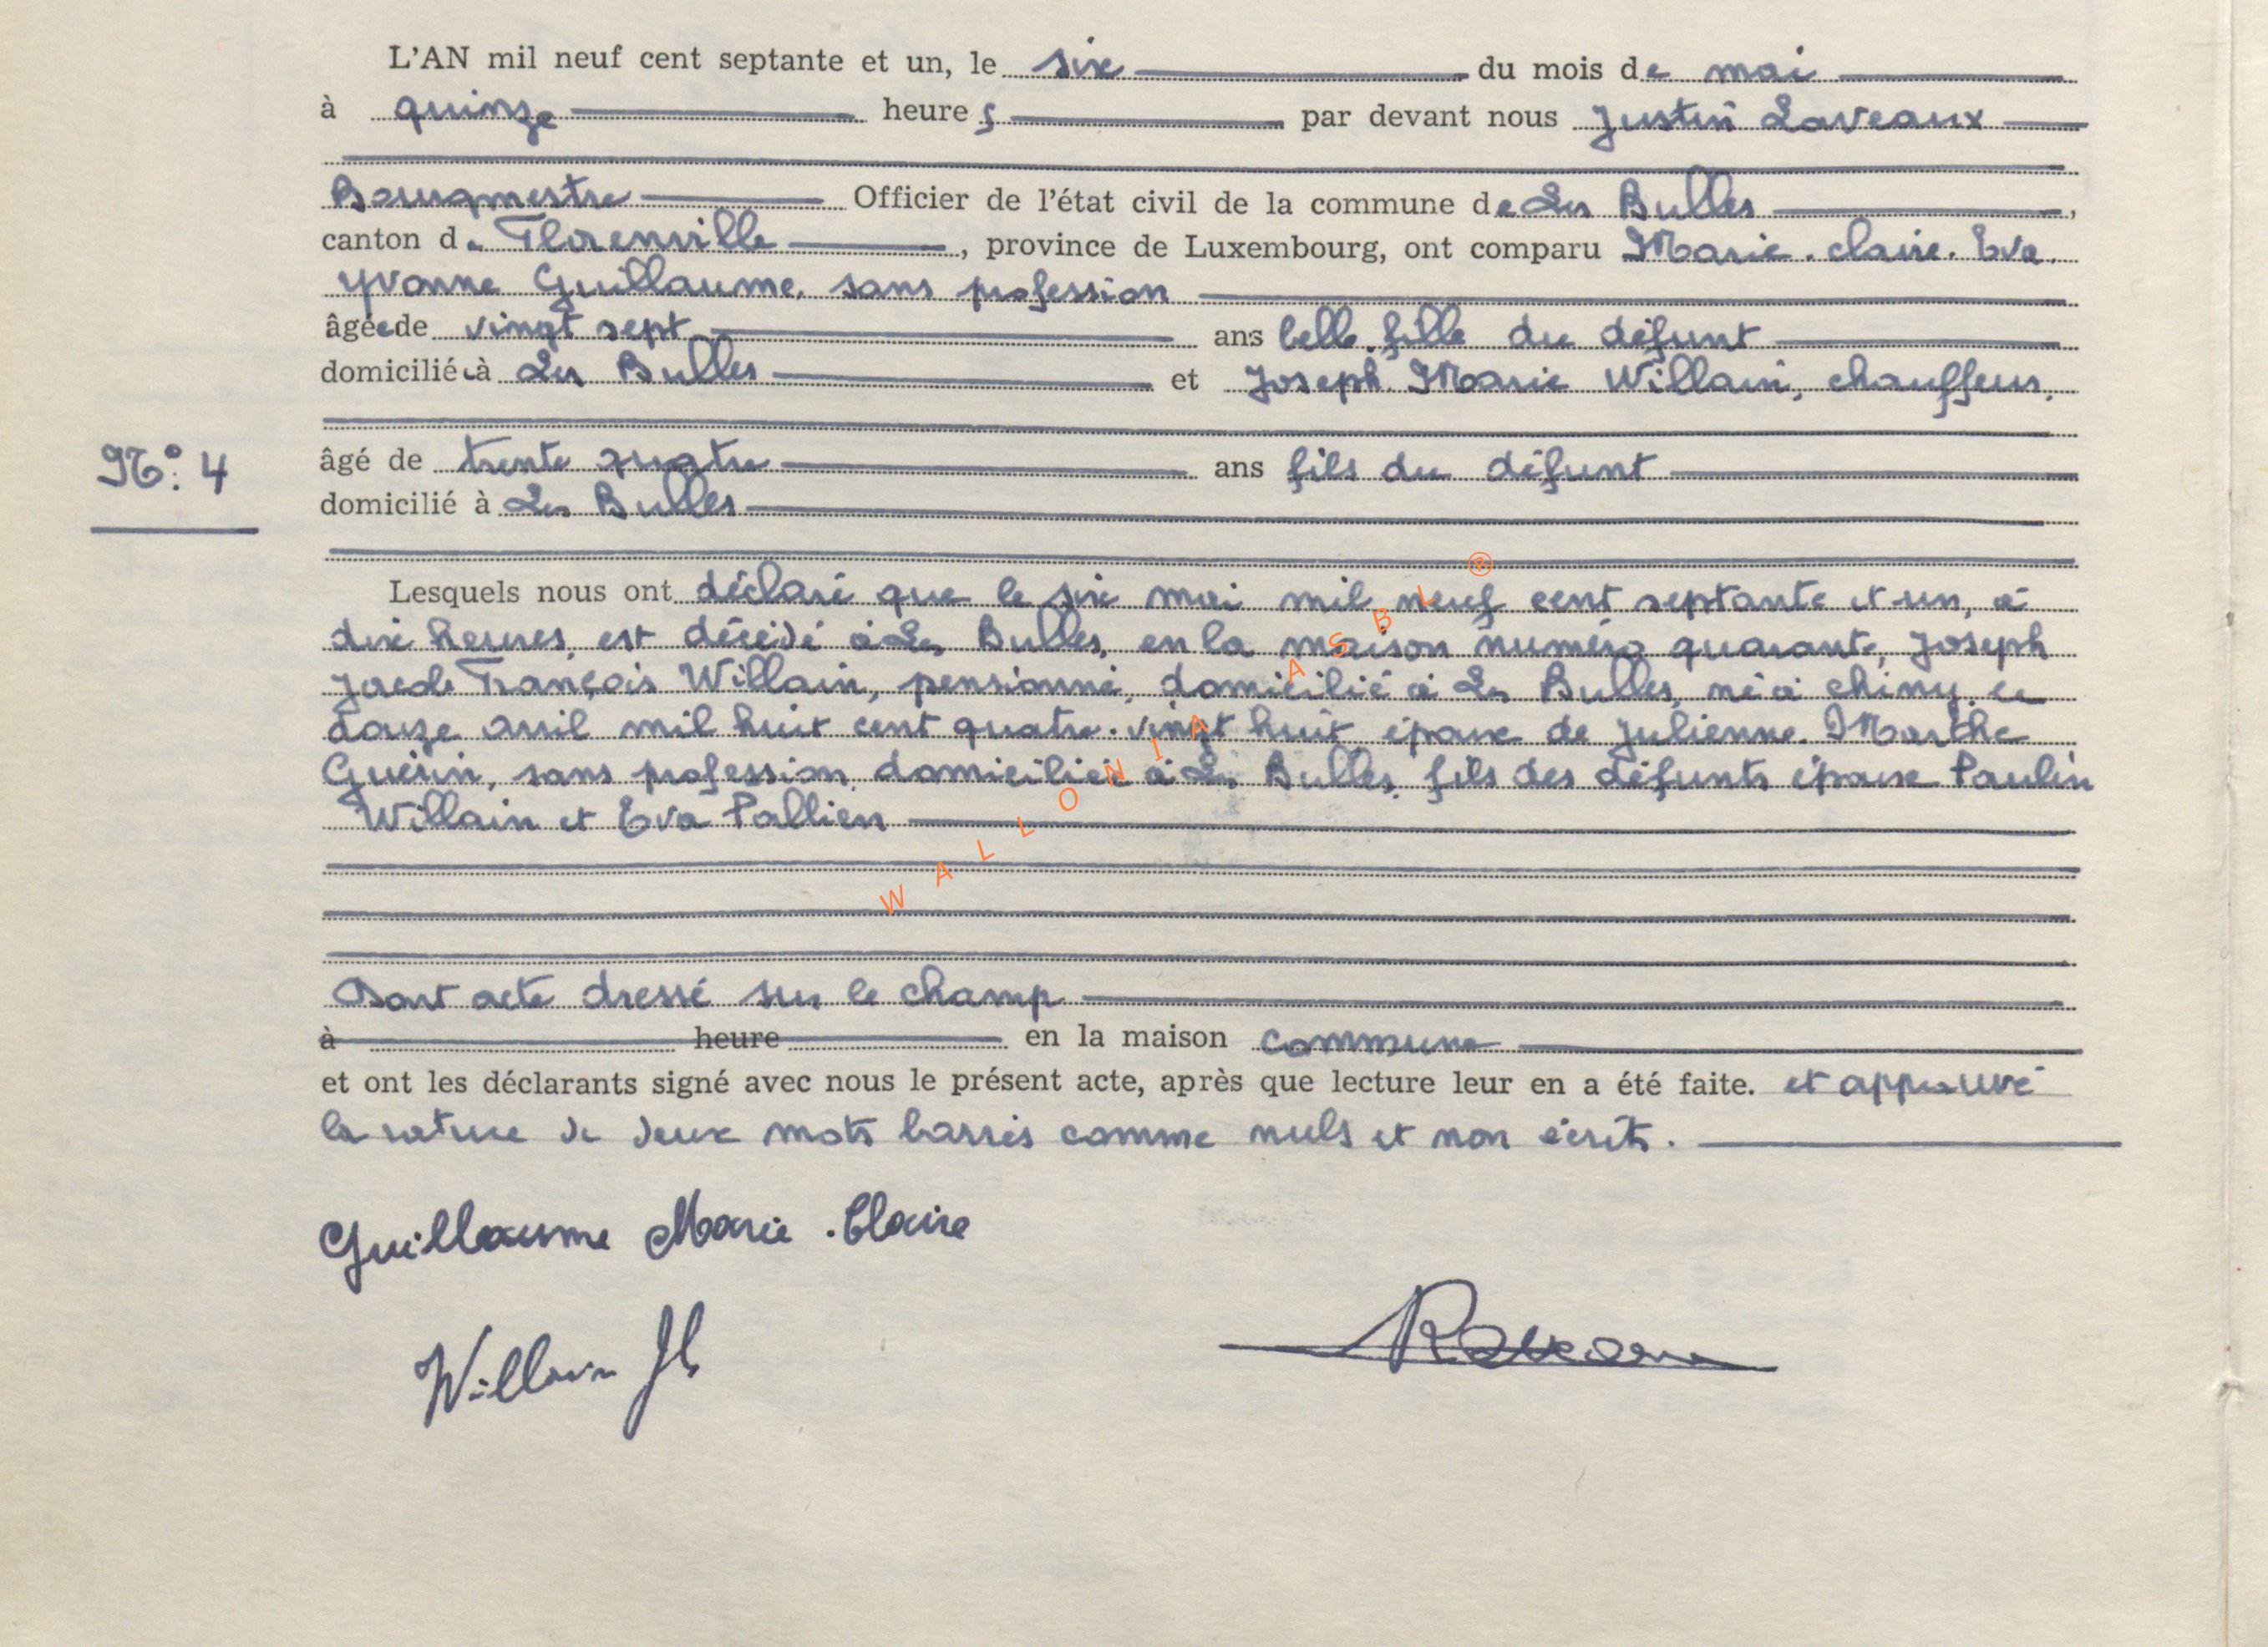 L'AN mil neuf cent septante et un, le six du mois de mai
à quinze heures par devant nous Justin Laveaux
Bourgmestre Officier de l'état civil de la commune de Les Bulles,
canton de Florenville, province de Luxembourg, ont comparu Marie. Claire. Eva.
Yvonne Guillaume, sans profession
âgée de vingt sept ans belle. fille du défunt
domiciliée à Les Bulles et Joseph. Marie Willain, chauffeur,
N°: 4
âgé de trente quatre ans fils du défunt
domicilié à Les Bulles
Lesquels nous ont déclaré que le six mai mil neuf cent septante et un, à
dix heures, est décédé à Les Bulles, en la maison numéro quarante, Joseph
François Willain, pensionné, domicilié à Les Bulles, né à Chiny, le
douze avril mil huit cent quatre. vingt huit époux de Julienne. Marthe
Guérin, sans profession, domiciliée à Les Bulles, fils des défunts époux Paulin
Willain et Eva Pallien
WALLONIA ASBL ®
Dont acte dressé sur le champ
à heure en la maison commune
et ont les déclarants signé avec nous le présent acte, après que lecture leur en a été faite. et approuvé
la rature de deux mots barrés comme nuls et non écrits.
Guillaume Marie. Claire
Willain